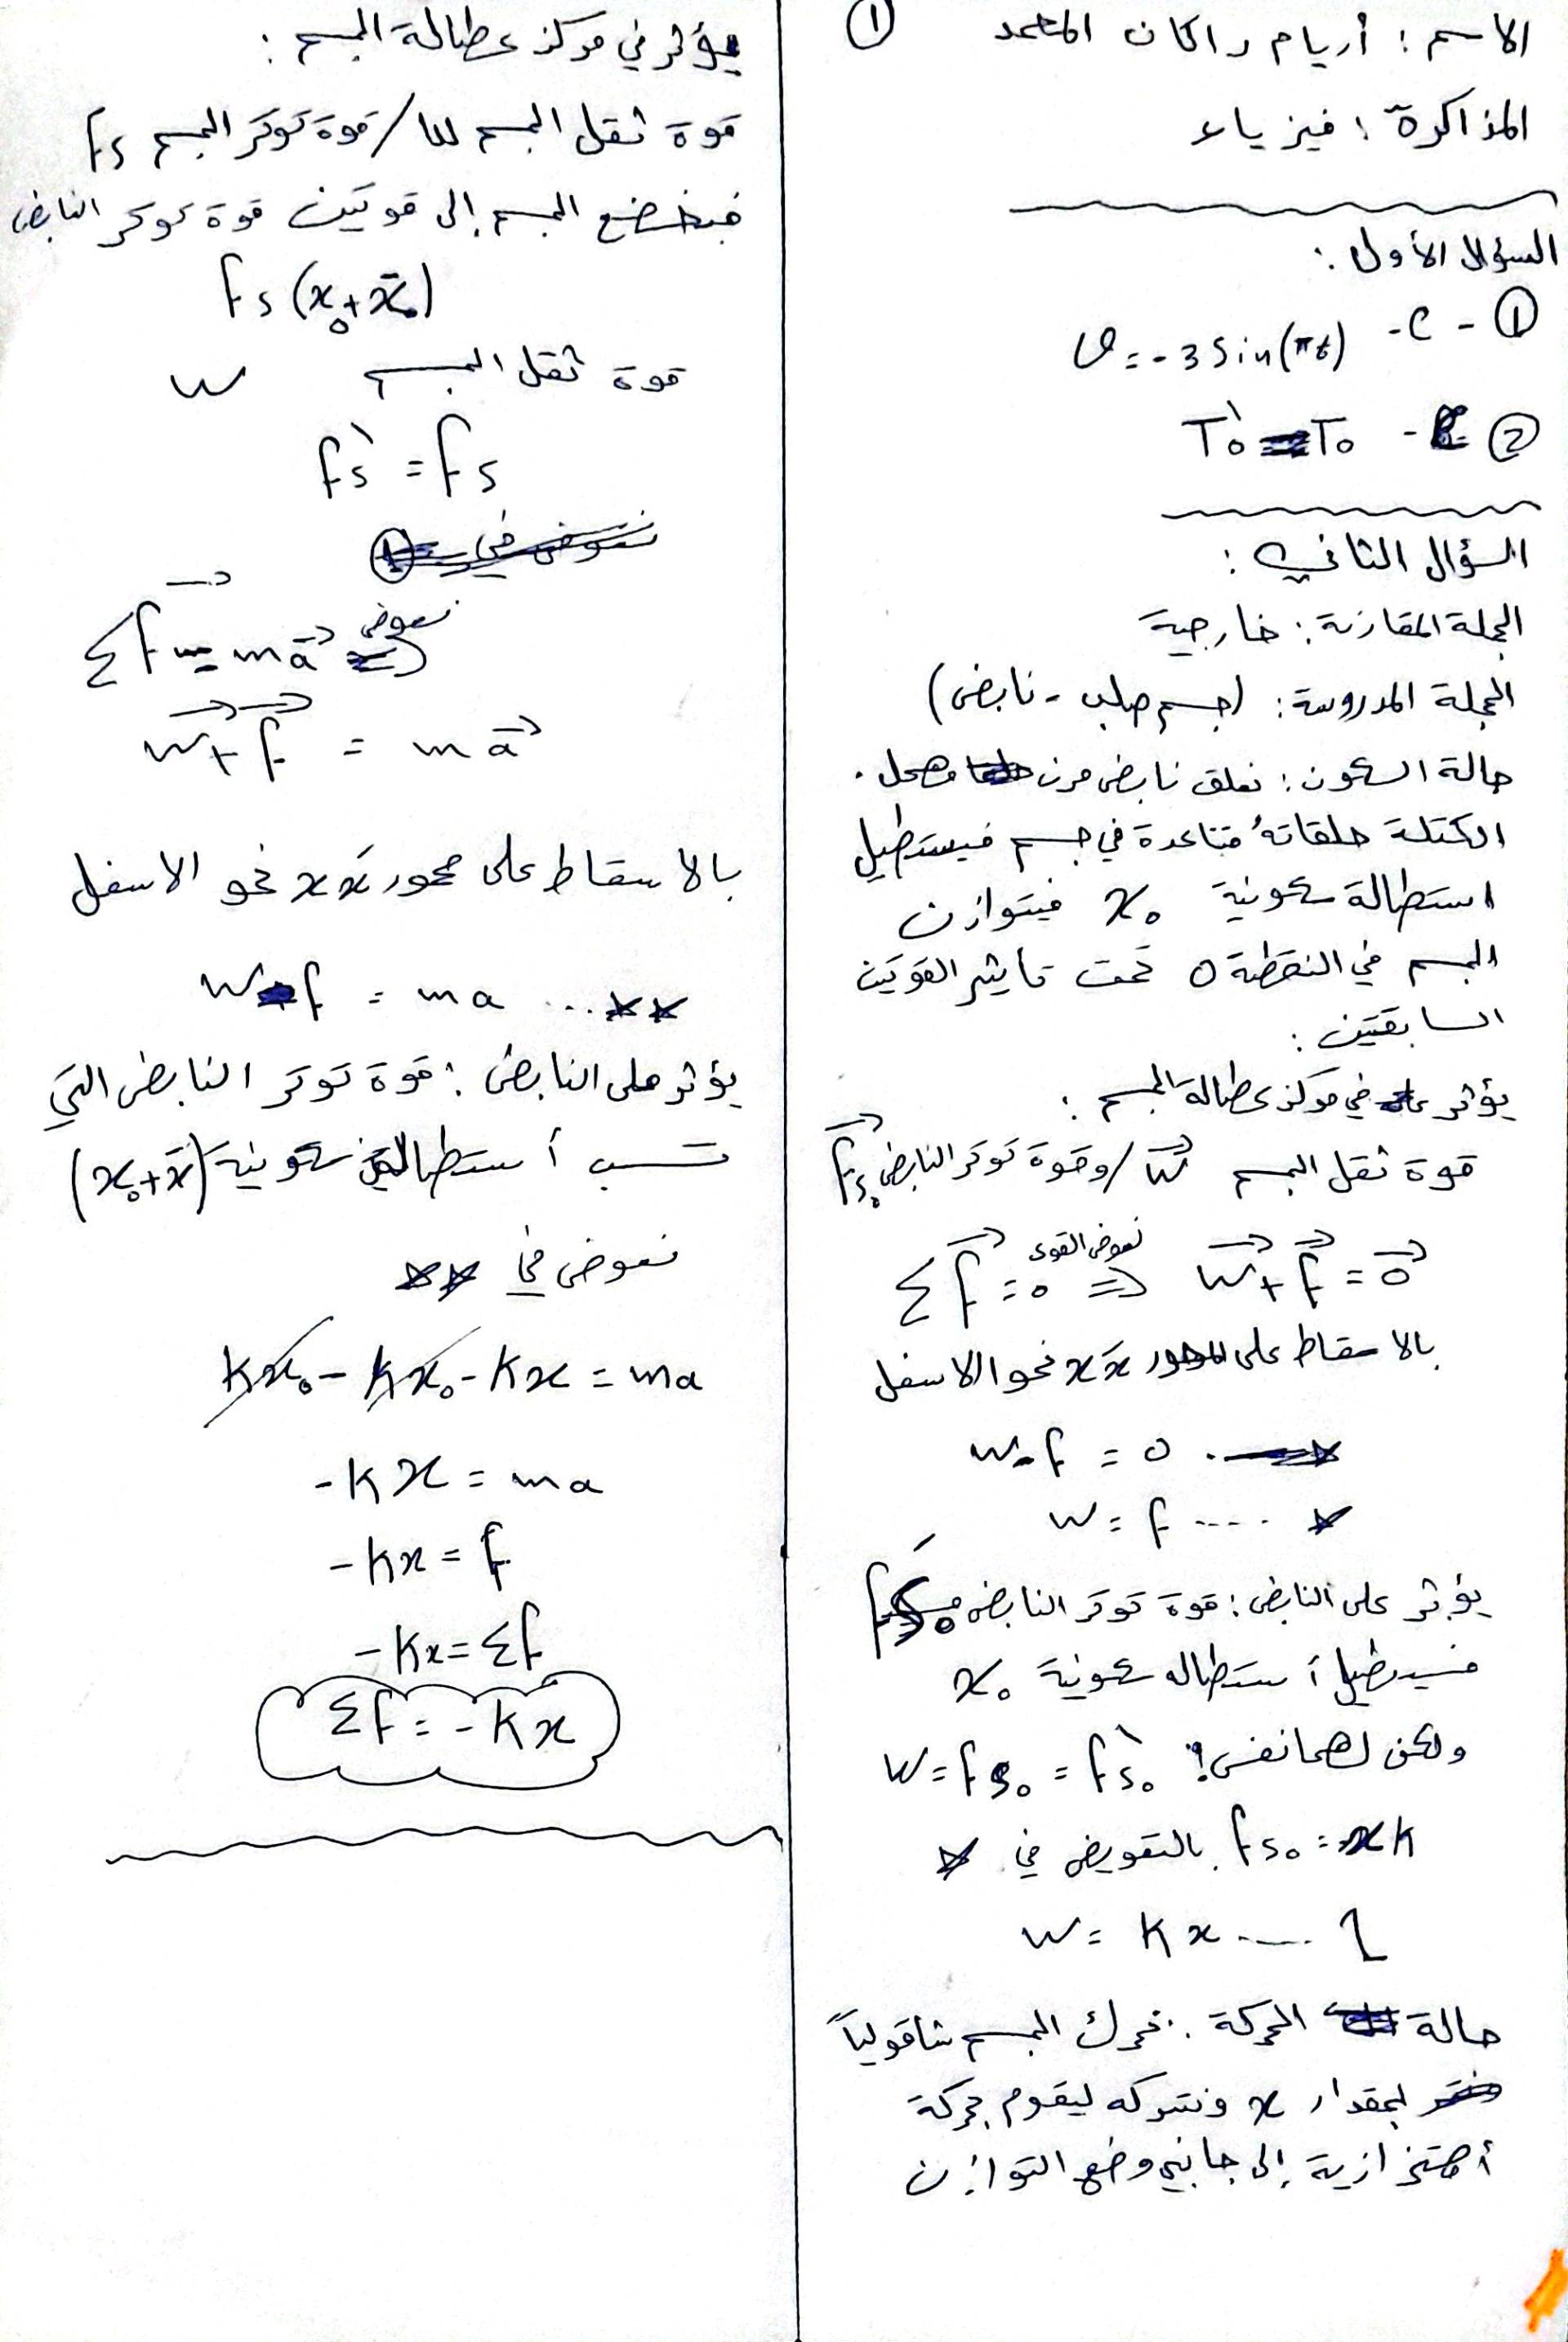 الاسم : أريام راكان المحمد ①
المذاكرة : فيزياء
السؤال الأول :
① - C - v = -3 sin(πt)
② - T₀' = T₀
السؤال الثاني :
الجملة المقارنة : خارجية
الجملة المدروسة : (جسم صلب - نابض)
حالة السكون : نعلق نابض مرن مهمل .
الكتلة حلقاته متباعدة في جسم فيستطيل
استطالة سكونية x₀ فيتوازن
الجسم في النقطة o تحت تأثير القوتين
السابقتين :
يؤثر في مركز عطالة الجسم :
قوة ثقل الجسم w⃗ / وقوة توتر النابض f⃗s₀
Σf⃗ = 0 نعوض القوى ⇒ w⃗ + f⃗ = 0⃗
بالاسقاط على محور x́x نحو الاسفل
w - f = 0
w = f .... *
يؤثر على النابض : قوة توتر النابض f́s₀
فيستطيل أستطاله سكونية x₀
ولكن لهما نفس ! w = fs₀ = fs₀'
fs₀ = xk بالتعويض في *
w = kx .... 1
حالة الحركة : نحرك الجسم شاقولياً
بمقدار x ونتركه ليقوم بحركة
أهتزازية إلى جانبي وضع التوازن
يؤثر في مركز عطالة الجسم :
قوة ثقل الجسم w / قوة توتر الجسم fs
فيخضع الجسم إلى قوتين قوة توتر النابض
fs (x₀ + x̄)
قوة ثقل الجسم w
fs' = fs
Σf⃗ = ma⃗ نعوض ⇒
w⃗ + f⃗ = ma⃗
بالاسقاط على محور x́x نحو الاسفل
w - f = ma ... **
يؤثر على النابض : قوة توتر النابض التي
تسبب أستطالة سكونية (x₀ + x̄)
نعوض في **
kx₀ - kx₀ - kx = ma
-kx = ma
-kx = f
-kx = Σf
Σf = -kx